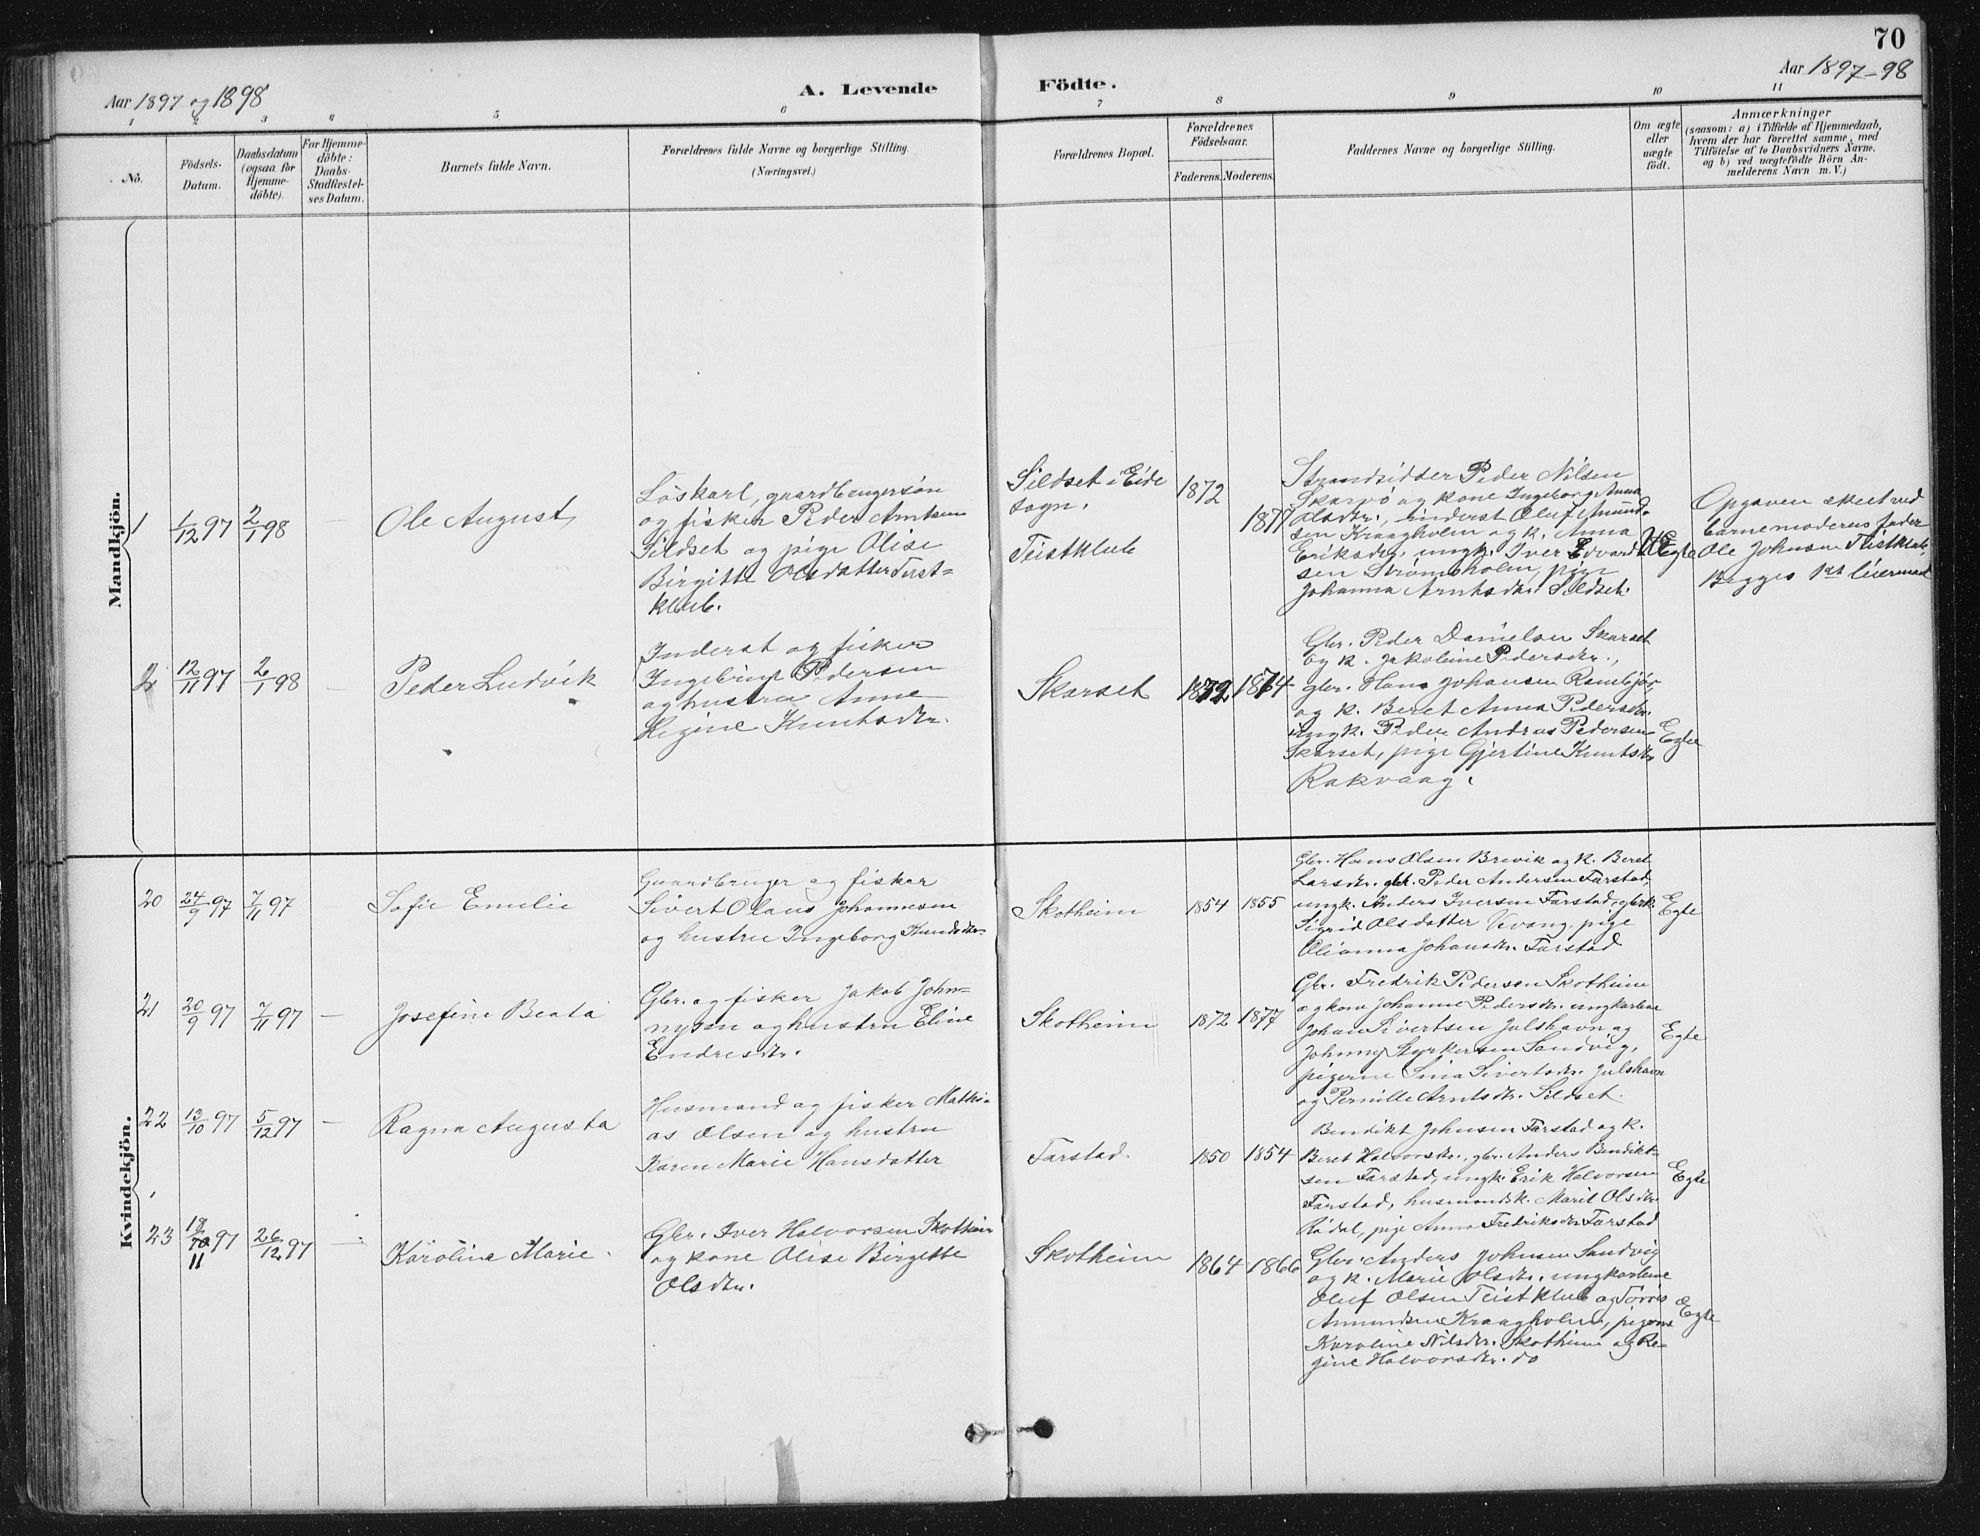 70
Aar 1897 og 1898
A. Levende
Födte.
Aar 1897-98
1
2
3
4
5
6
7
8
9
10
11
No.
Födsels-
Datum.
Daabsdatum
(ogsaa for
Hjemme-
døbte).
For Hjemme-
döbte:
Daabs-
Stadfæstel-
ses Datum.
Barnets fulde Navn.
Forældrenes fulde Navne og borgerlige Stilling.
(Næringsvei.)
Forældrenes Bopæl.
Forældrenes
Födselsaar.
Faderens.
Moderens.
Faddernes Navne og borgerlige Stilling.
Om ægte
eller
uægte
födt.
Anmærkninger
(saasom: a) i Tilfælde af Hjemmedaab,
hvem der har forrettet samme, med
Tilföielse af to Daabsvidners Navne.
og b) ved uægtefödte Börn An-
melderens Navn m. V.)
Mandkjön.
1
1/12 97
2/1 98
—
Ole August
Löskarl, gaardbrugersön
og fisker Peder Arntsen
Sildset og pige Olise
Birgitte Olsdatter Teist-
klub.
Sildset i Eide
sogn.
Teistklub
1872
1877
Strandsidder Peder Nilsen
Skarvö og kone Ingeborg Anna
Olsdtr., inderst Oluf Amund-
sen Kraagholm og k. Anna
Eriksdtr., ungk. Iver Edvard
sen Strömsholm, pige
Johanna Arntsdtr. Sildset.
Uegte
Opgaven skeet ved
barnemoderens fader
Ole Johnsen Teistklub
Begges 1st leiermaal
2
12/11 97
2/1 98
—
Peder Ludvik
Inderst og fisker
Ingebrigt Pedersen
og hustru Anne
Regine Knutsdtr.
Skarset
1872
1874
Gbr. Peder Danielsen Skarset
og k. Jakobine Pedersdtr.,
gbr. Hans Johansen
og k. Beret Anna Pedersdtr.
ungk. Peder Andreas Pedersen
Skarset, pige Gjertine Knutsdtr
Rakvaag.
Egte
Kvindekjön.
20
24/9 97
7/11 97
—
Sofie Emilie
Gaardbruger og fisker
Sivert Olaus Johannesen
og hustru Ingeborg Knudsdtr.
Skotheim
1854
1855
Gbr. Hans Olsen Brevik og k. Beret
Larsdtr. gbr. Peder Andersen Farstad,
ungk. Anders Iversen Farstad, gbrk.
Sigrid Olsdatter Vevang, pige
Olianna Johansdtr. Farstad
Egte
21
20/9 97
7/11 97
—
Josefine Beata
Gbr. og fisker Jakob John-
nysen og hustru Eline
Endresdtr.
Skotheim
1872
1877
Gbr. Fredrik Pedersen Skotheim
og kone Johanne Pedersdtr. ungkarlene
Johan Sivertsen Julshavn og
Johnny Styrkersen Sandvig,
pigerne Sina Sivertsdtr. Julshavn
og Pernille Arntsdtr. Sildset.
Egte
22
13/10 97
5/12 97
—
Ragna Augusta
Husmand og fisker Mathi-
as Olsen og hustru
Karen Marie Hansdatter
Farstad.
1850
1854
Bendikt Johnsen Farstad og k.
Beret Halvorsdtr., gbr. Anders Bendikt-
sen Farstad, ungk. Erik Halvorsen
Farstad, husmandsk. Marit Olsdtr.
Rödal, pige Anna Fredriksdtr. Farstad
Egte
23
18/11 97
26/12 97
—
Karolina Marie.
Gbr. Iver Halvorsen Skotheim
og kone Olise Birgitte
Olsdtr.
Skotheim
1864
1866
Gbr. Anders Johnsen Sandvig
og k. Marie Olsdtr. ungkarlene
Oluf Olsen Teistklub og Torris
Amundsen Kraagholm, pigerne
Karoline Nilsdtr. Skotheim og Re-
gine Halvorsdtr. do
Egte